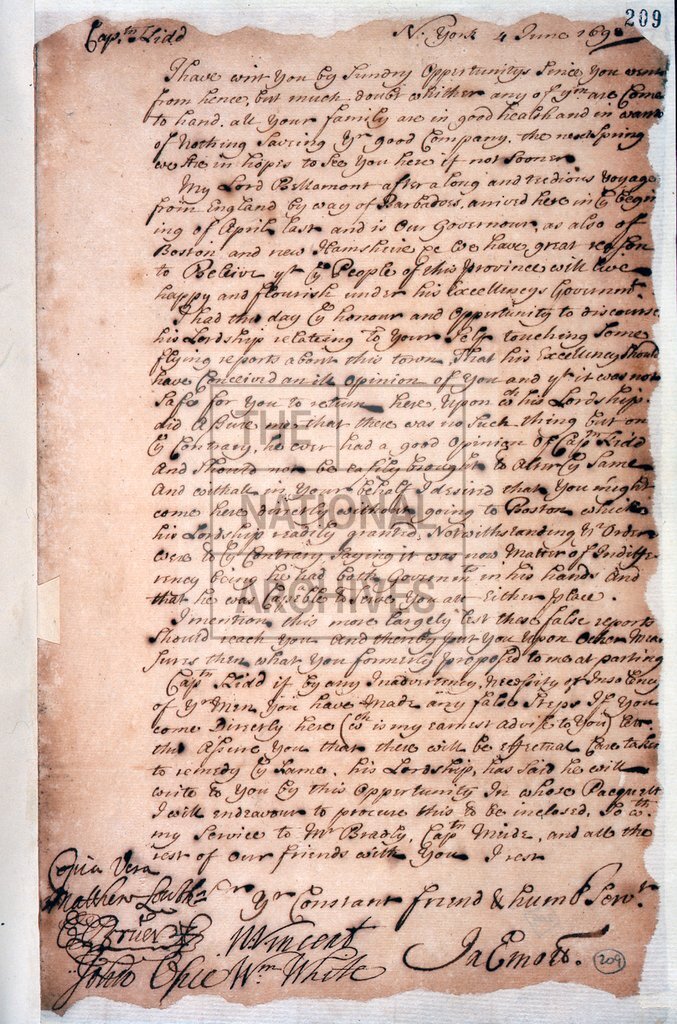 209
Captn Kidd N. York 4 June 1698
I have writ You by Sundry Opportunitys Since You went
from hence, but much doubt whither any of ym are Come
to hand. all Your family are in good health and in want
of Nothing Saveing Yr good Company. the next Spring
we Are in hopes to See You here if not Sooner
My Lord Bellamont after a long and tedious Voyage
from England by way of Barbados, arrived here in ye begin
ing of April last and is Our Governour, as also of
Boston and new Hamshire &c We have great reason
to Believe yt ye People of this Province will live
happy and flourish under his Excellencys Governmt.
I had this day ye honour and Opportunity to discourse
his Lordship relateing to Your Self touching Some
flying reports about this town, That his Excellency Should
have Conceived an ill Opinion of You and yt it was not
Safe for You to return here Upon wch his Lordship
did Assure me that there was no Such thing but on
ye Contrary, he ever had a good Opinion of Captn Kidd
And Should not be easily brought to Alter ye Same
And withall in Your behalf I desired that You might
come here directly without going to Boston which
his Lordship readily granted, Notwithstanding Yr Orders
were to ye Contrary Saying it was now Matter of Indiffe
rency being he had both Governmts in his hands And
that he was Capable to Serve You att Either place.
I mention this more largely lest these false reports
Should reach You And thereby put You Upon Other Mea
sures then what You formerly proposed to me at parting
Captn Kidd if by any Inadvertency, Necessity of Insolency
of Yr Men You have Made any false Steps If You
come Directly here (wch is my earnest advise to You) Lett
this Assure You that there will be effectual Care taken
to remedy ye Same. his Lordship has Said he will
write to You by this Opportunity In whose Pacquett
I will endeavour to procure this to be inclosed, So wth
my Service to Mr Bradly, Captn Meide, and all the
rest of our friends with You I rest
Yr Constant friend & humb Servt
Ja Emott.
Copia Vera
Matthew South
Bruer
M Vincent
John Opie Wm White
209
THE
NATIONAL
ARCHIVES